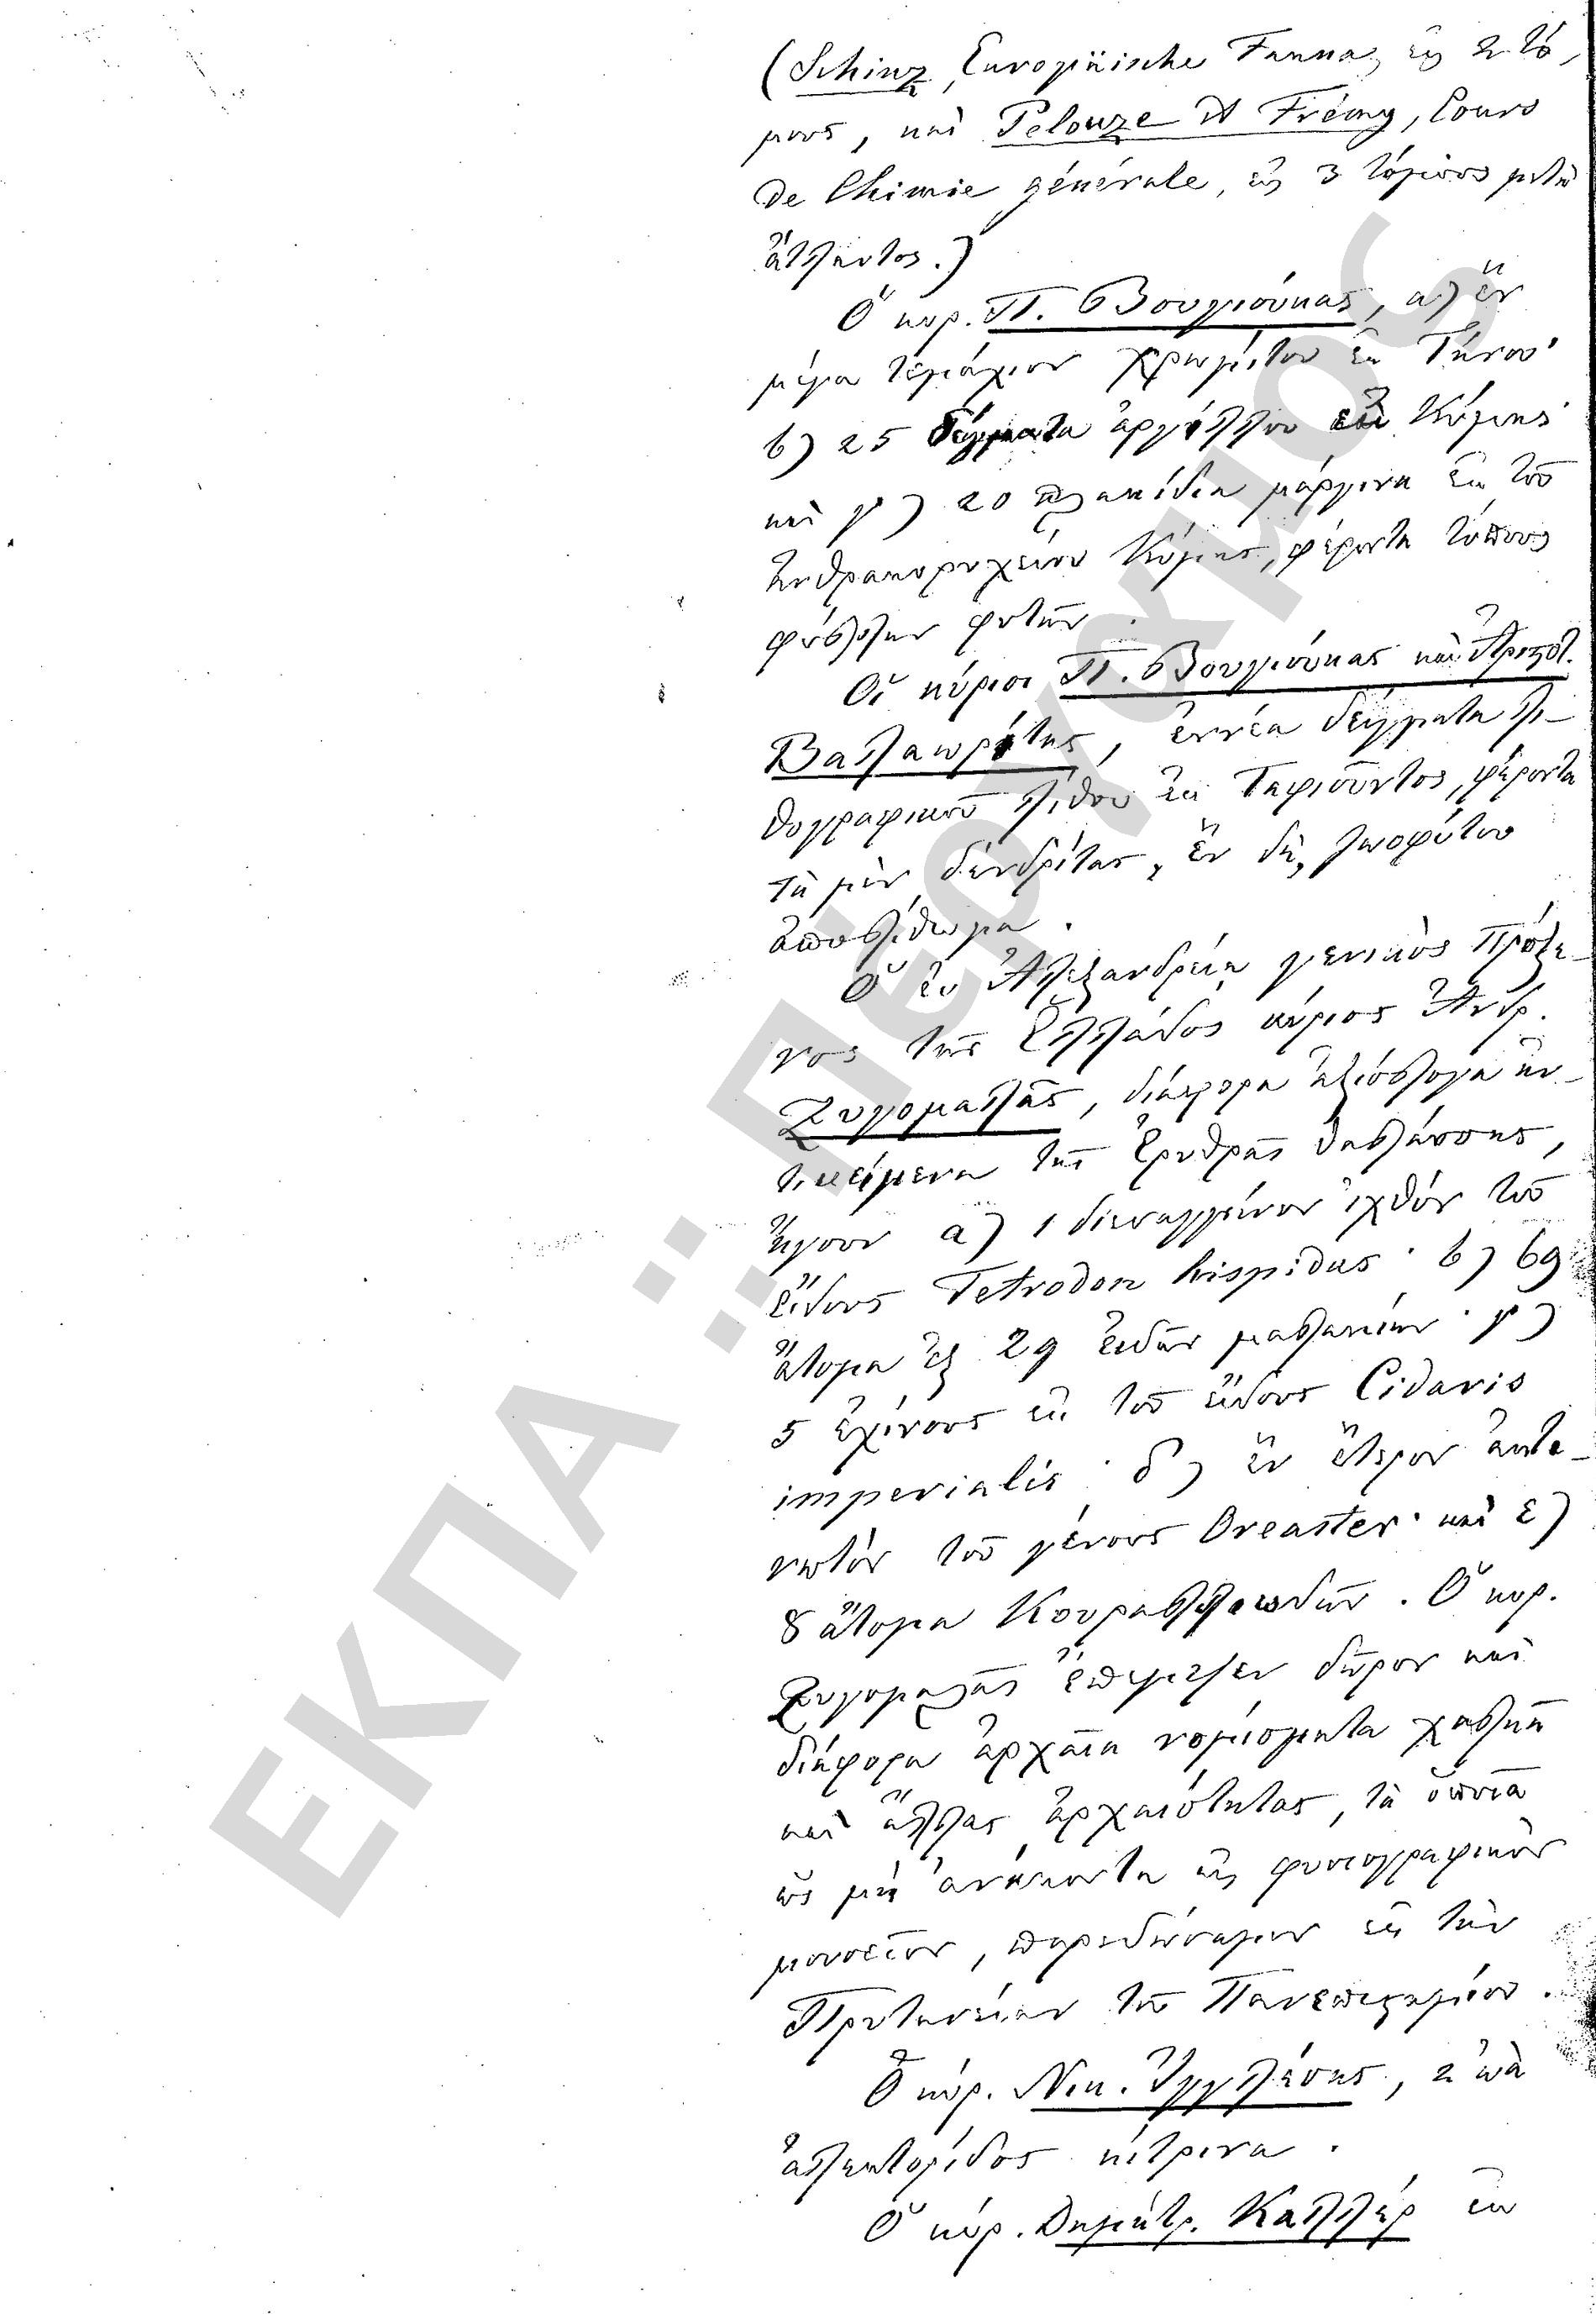 (Schinz, Europäische Fauna, εἰς 2 τό-
μους, καὶ Pelouze et Frémy, Cours
de Chimie générale, εἰς 3 τόμους μετὰ
ἄτλαντος.)
Ὁ κυρ. Π. Βουγιούκας, α) ἓν
μέγα τεμάχιον χρωμίτου ἐκ Τήνου·
β) 25 δείγματα ἀργίλλου ἐκ Κύμης·
καὶ γ) 20 πλακίδια μάργινα ἐκ τοῦ
ἀνθρακορυχείου Κύμης, φέροντα τύπους
φύλλων φυτῶν.
Οἱ κύριοι Π. Βουγιούκας καὶ Ἀριστοτ.
Βαλαωρίτης, ἐννέα δείγματα λι-
θογραφικοῦ λίθου ἐκ Ταφιοῦντος, φέροντα
τὰ μὲν δενδρίτας, ἓν δὲ, ζωοφύτου
ἀπολίθωμα.
Ὁ ἐν Ἀλεξανδρείᾳ γενικὸς Πρόξε-
νος τῆς Ἑλλάδος κύριος Ἀνδρ.
Ζυγομαλᾶς, διάφορα ἀξιόλογα ἀν-
τικείμενα τῆς Ἐρυθρᾶς θαλάσσης,
ἤγουν α) 1 διεσαγμένον ἰχθὺν τοῦ
εἴδους Tetrodon hispidus· β) 69
ἄτομα ἐξ 29 εἰδῶν μαλακίων· γ)
5 ἐχίνους ἐκ τοῦ εἴδους Cidaris
imperialis· δ) ἓν ἕτερον ἀκτι-
νωτὸν τοῦ γένους Oreaster· καὶ ε)
8 ἄτομα Κοραλλιωδῶν. Ὁ κυρ.
Ζυγομαλᾶς ἔπεμψεν δῶρον καὶ
διάφορα ἀρχαῖα νομίσματα χαλκᾶ
καὶ ἄλλας ἀρχαιότητας, τὰ ὁποῖα
ὡς μὴ ἀνήκοντα εἰς φυσιογραφικὸν
μουσεῖον, παρεδώσαμεν εἰς τὴν
Πρυτανείαν τοῦ Πανεπιστημίου.
Ὁ κύρ. Νικ. Ἰγγλέσης, 2 ὠὰ
ἀλεκτορίδος κίτρινα.
Ὁ κύρ. Δημήτρ. Καλλέρ ἐκ
ΕΚΠΑ "Πέργαμος"